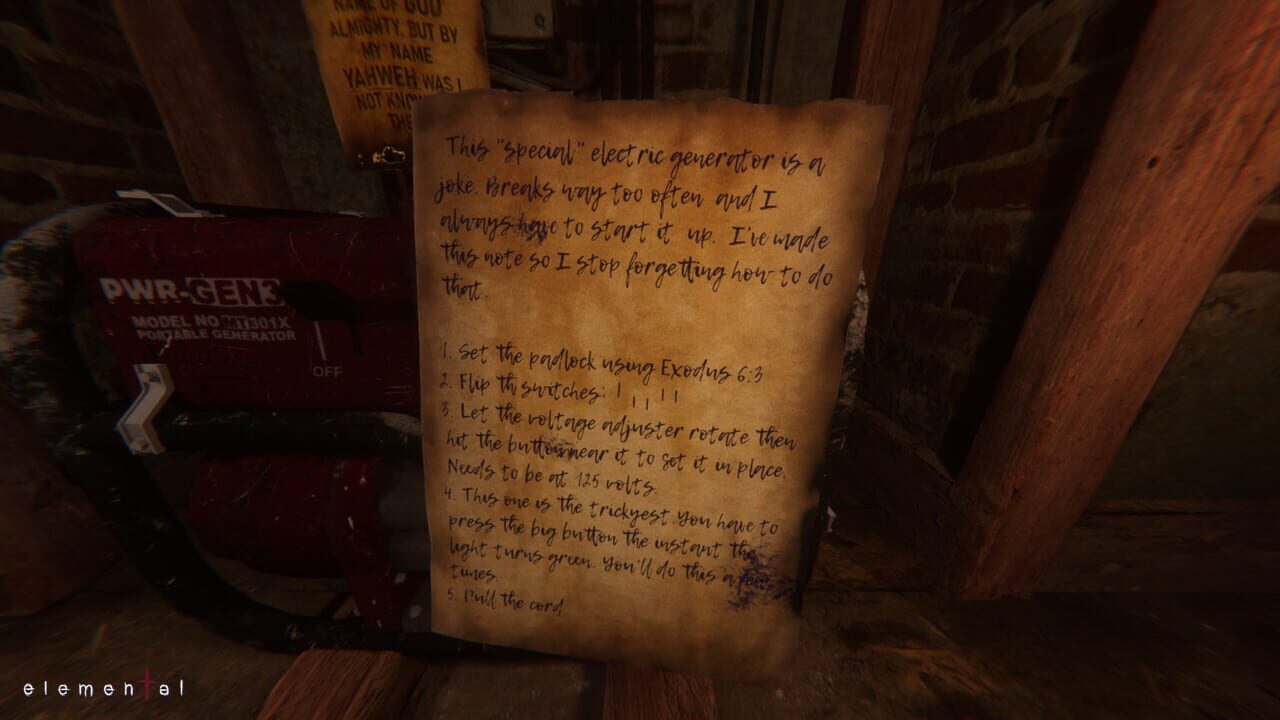 NAME OF GOD
ALMIGHTY, BUT BY
MY NAME
YAHWEH WAS I
NOT
THE
This "special" electric generator is a
joke. Breaks way too often and I
always have to start it up. I've made
this note so I stop forgetting how to do
that.
1. Set the padlock using Exodus 6:3
2. Flip th switches:
3. Let the voltage adjuster rotate then
hit the button near it to set it in place.
Needs to be at 125 volts.
4. This one is the trickyest. You have to
press the big button the instant the
light turns green. You'll do this a few
times.
5. Pull the cord
PWR-GEN3
MODEL NO MT301X
PORTABLE GENERATOR
OFF
elemental